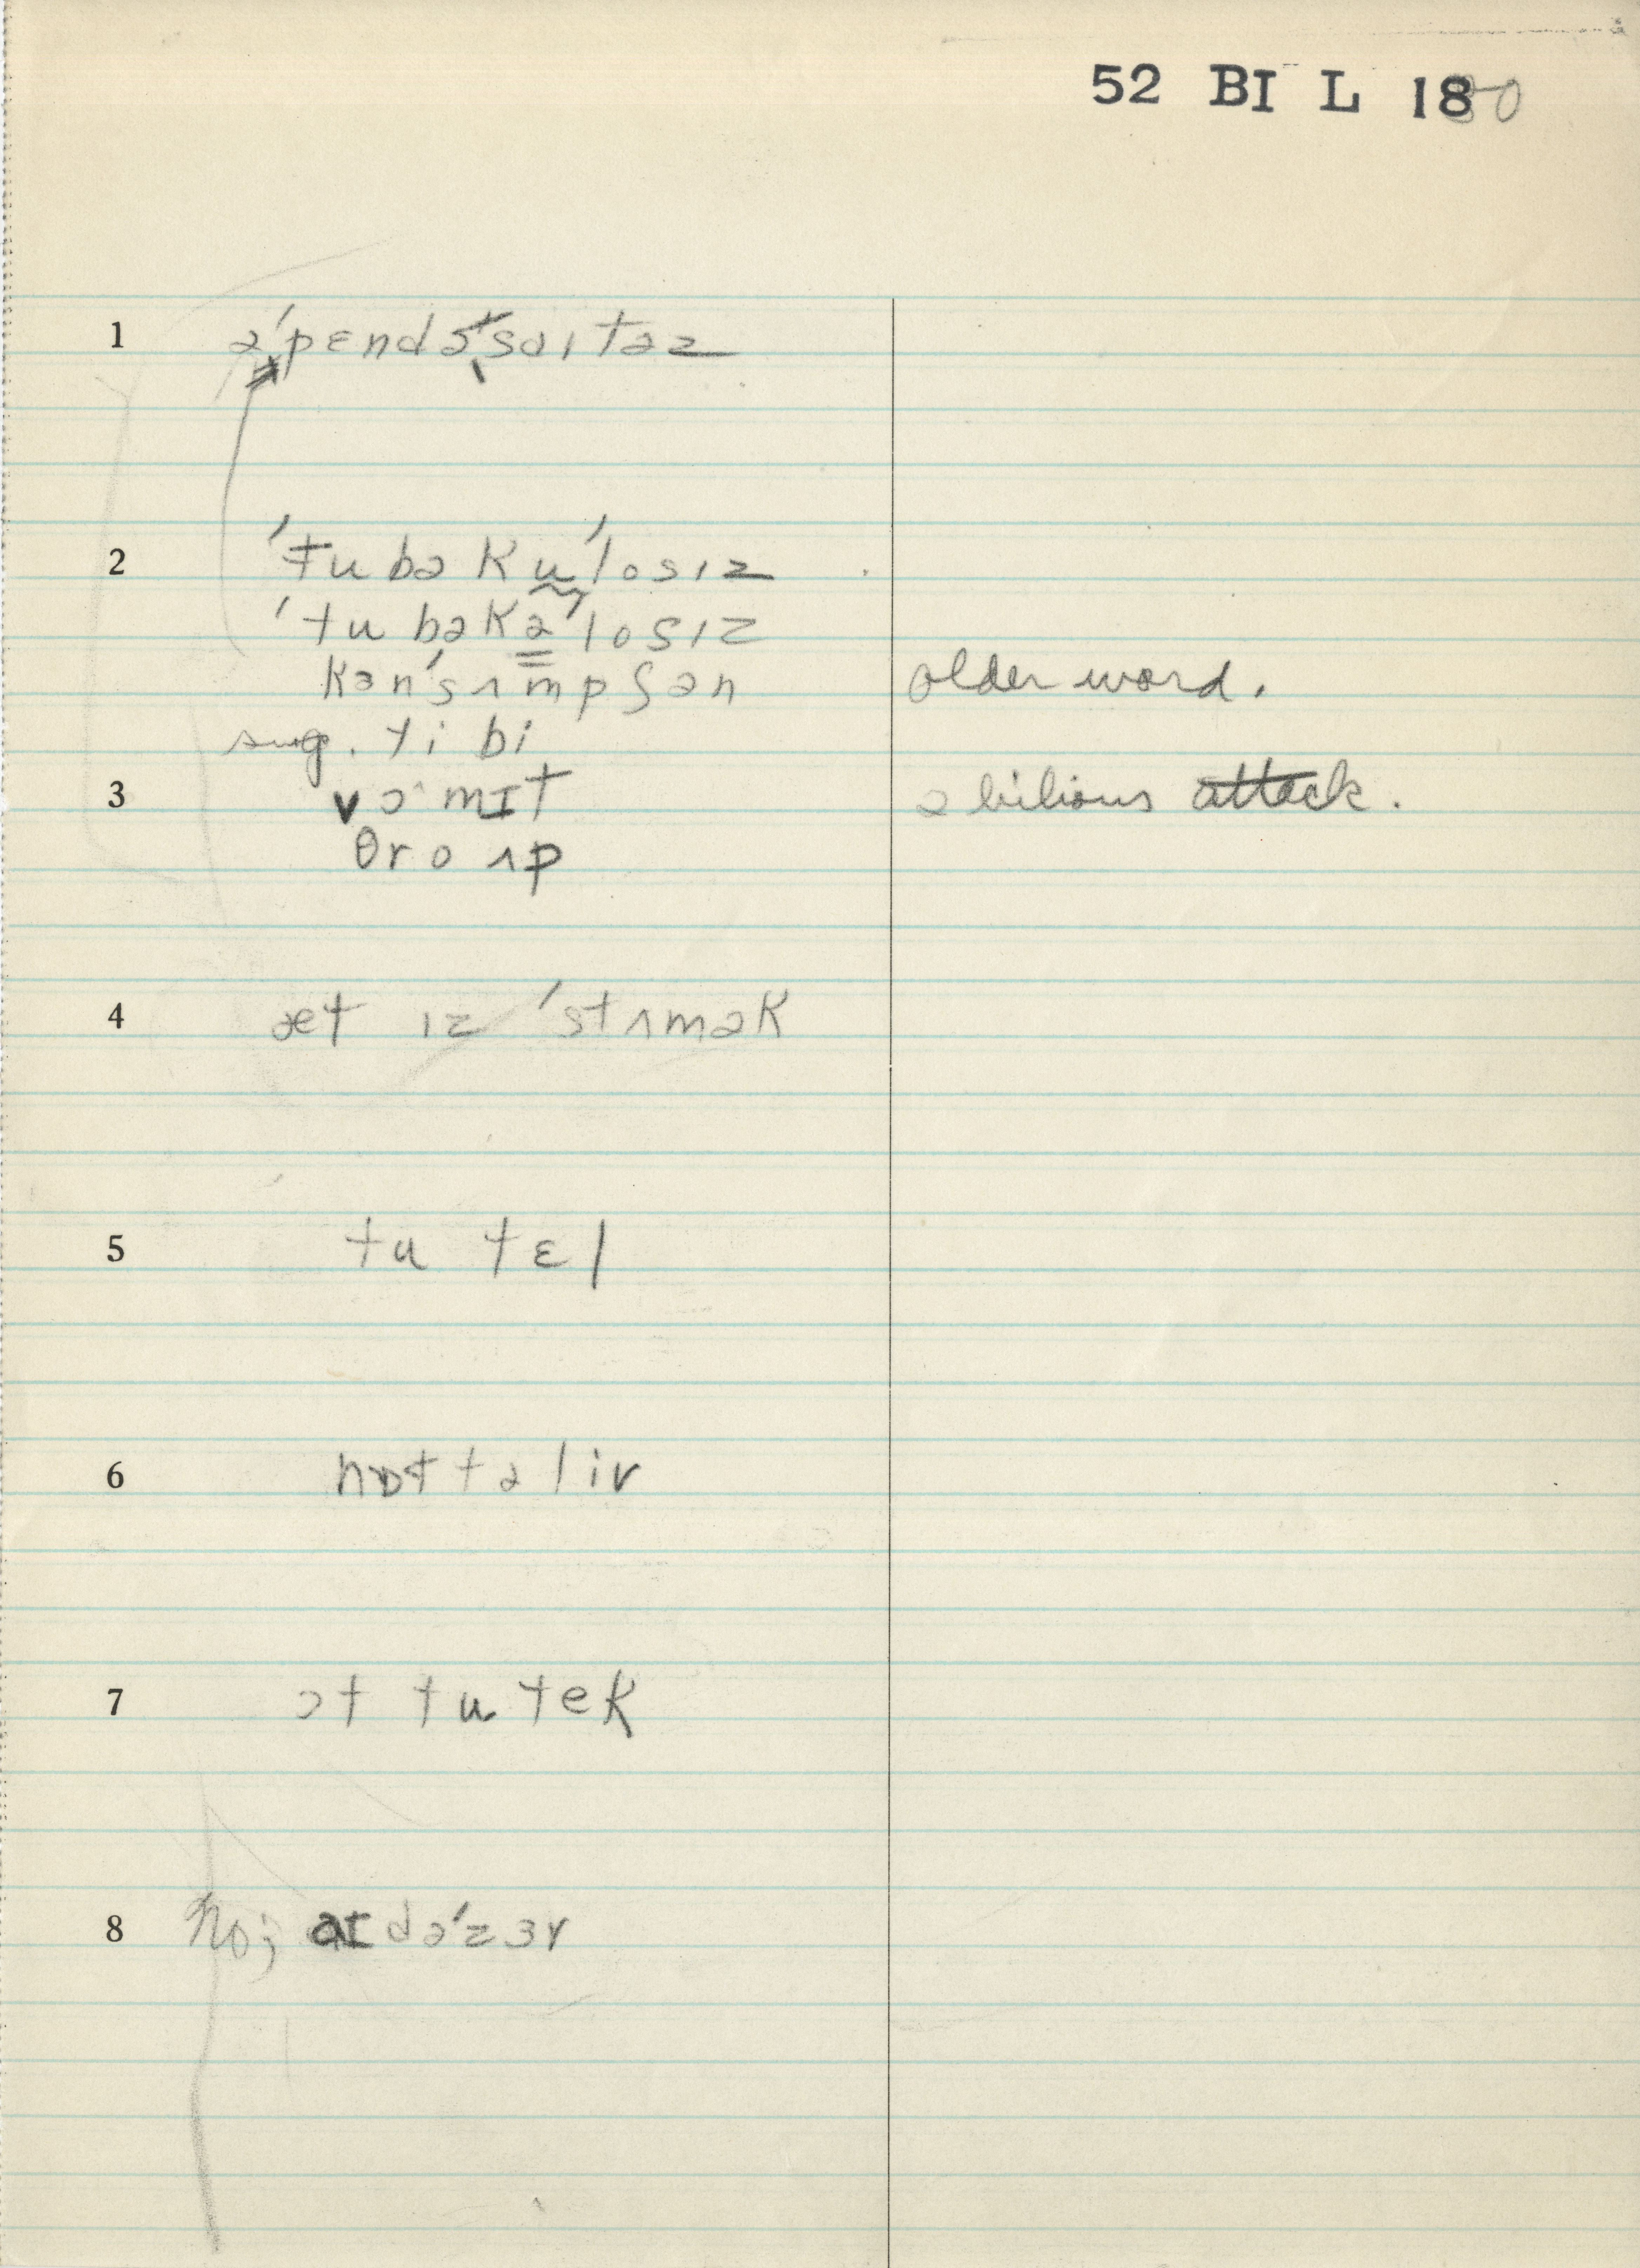 52 BI L 1880
1 ə'pɛndə'saɪtəz
2 'tubəku'losɪz
'tubəkə'losɪz
kən'sʌmpʃən older word.
sug. ti bi
3 vɔmɪt a bilious attack.
θro ʌp
4 æt ɪz 'stʌmək
5 tu tɛl
6 nɒt tə liv
7 ɔt tu tek
8 no; aɪ də'zɜr